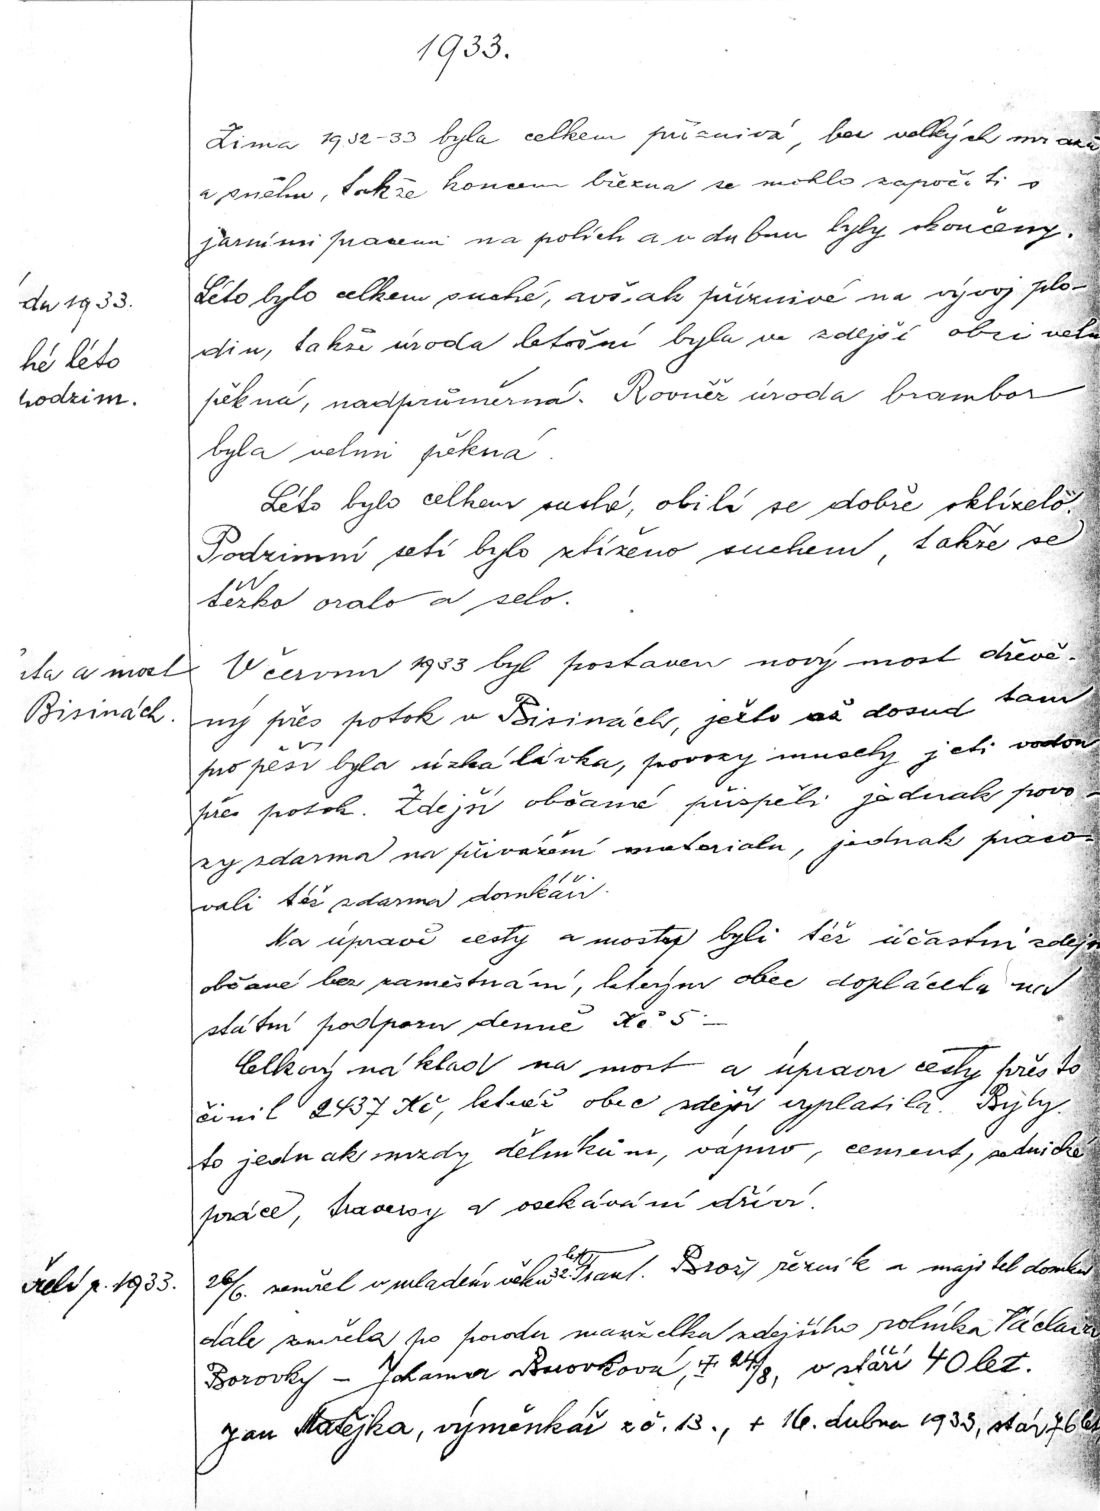 1933.
Zima 1932-33 byla celkem příznivá, bez velkých mrazů
a sněhu, takže koncem března se mohlo započíti s
jarními pracemi na polích a v dubnu byly skončeny.
du 1933.
Léto bylo celkem suché, avšak příznivé na vývoj plo-
din, takže úroda letošní byla ve zdejší obci velmi
hé léto
pěkná, nadprůměrná. Rovněž úroda brambor
podzim.
byla velmi pěkná.
Léto bylo celkem suché, obilí se dobře sklízelo.
Podzimní setí bylo ztíženo suchem, takže se
těžko oralo a selo.
sta a most
V červnu 1933 byl postaven nový most dřevě-
Bisinách.
ný přes potok v Bisinách, ježto až dosud tam
pro pěší byla úzká lávka, povozy musely jeti vodou
přes potok. Zdejší občané přispěli jednak povo-
zy zdarma na přivážení materialu, jednak praco-
vali též zdarma domkáři.
Na úpravě cesty a mostu byli též účastni zdejší
občané bez zaměstnání, kterým obec doplácela na
státní podporu denně Kč 5.-
Celkový náklad na most a úpravu cesty přes to
činil 2437 Kč, kteréž obec zdejší vyplatila. Byly
to jednak mzdy dělníkům, vápno, cement, zednické
práce, traversy a osekávání dříví.
řelí r. 1933.
26/6. zemřel v mladém věku 32 let Frant. Brož, řezník a majitel domku
dále zemřela po porodu manželka zdejšího rolníka Václava
Borovky - Johanna Borovková, † 24/8, v stáří 40 let.
Jan Matějka, výměnkář z č. 13., + 16. dubna 1933, stár 76 let